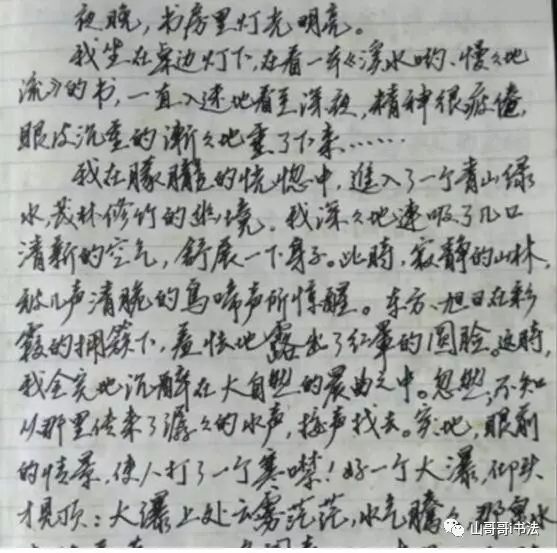 夜晚，书房里灯光明亮。
我坐在桌边灯下，在看一本《溪水哟、慢々地
流》的书，一直入迷地看至深夜，精神很疲倦，
眼皮沉重的渐々地垂了下来……
我在朦胧的恍惚中，進入了一个青山绿
水，茂林修竹的幽境。我深々地連吸了几口
清新的空气，舒展一下身子。此時，寂静的山林，
被几声清脆的鸟啼声所惊醒。东方、旭日在彩
霞的拥簇下，羞怯地露出了红晕的圆脸。这時，
我全实地沉醉在大自然的晨曲之中。忽然，不知
从那里传来了潺々的水声，接声找去。突地，眼前
的情景，使人打了一个寒噤！好一个大瀑，仰头
才見顶：大瀑上处云雾茫茫，水气騰々，那泉水
山哥哥讲书法